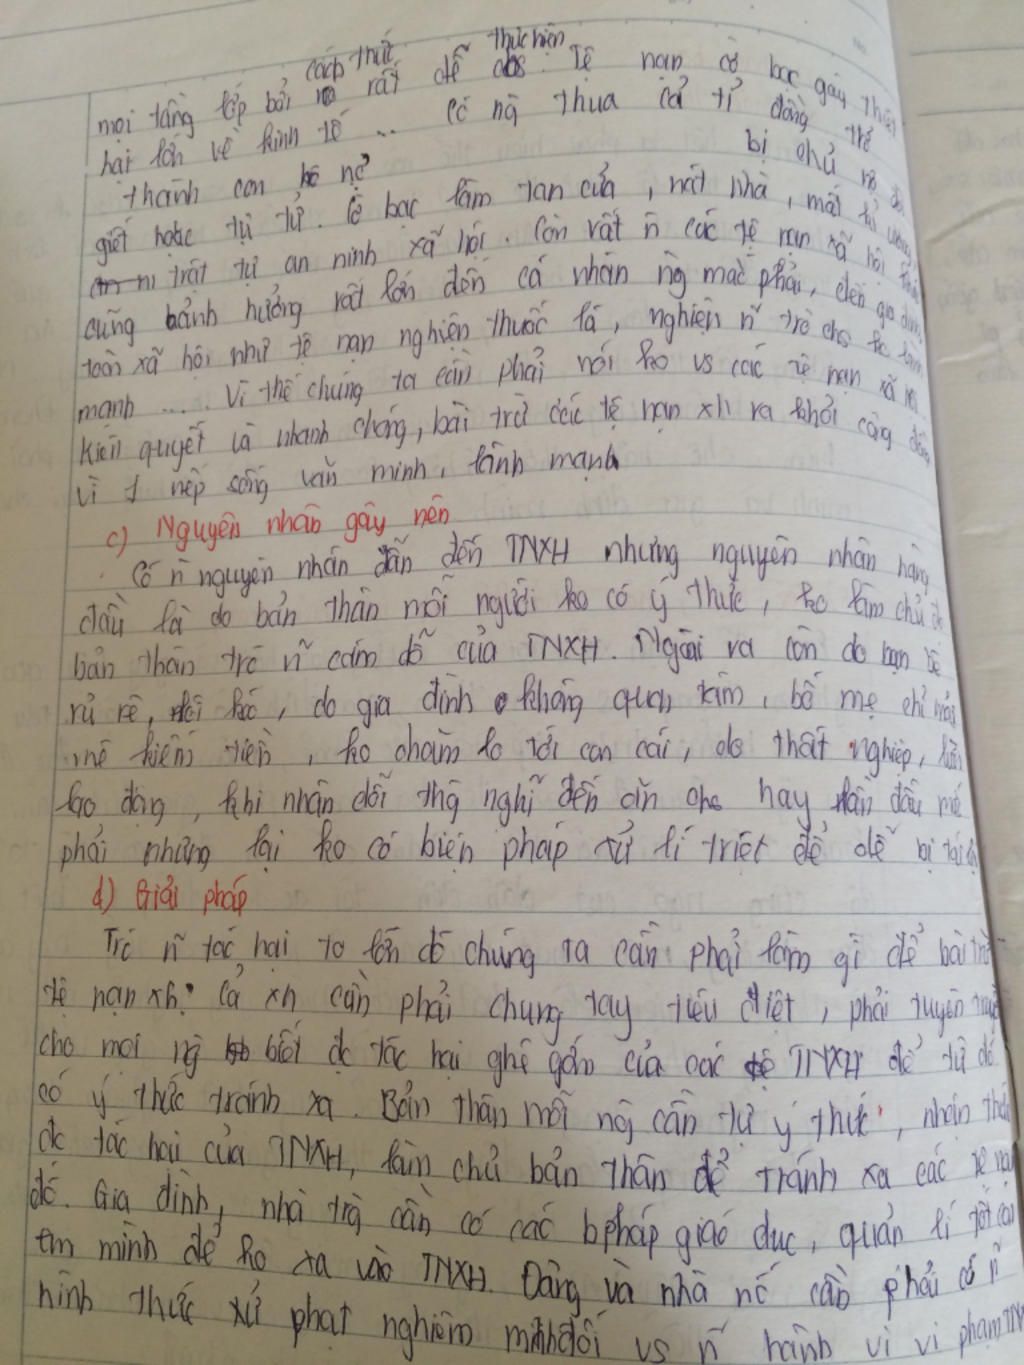 cách thức thực hiện
mọi tầng lớp bởi rất dễ Tệ nạn cờ bạc gây thiệt
hại lớn về kinh tế ... Có ng thua cả tỉ đồng trở
thành con nợ bị chủ nợ
giết hoặc tự tử. Cờ bạc làm tan cửa, nát nhà, mất
trật tự an ninh xã hội. Còn rất n̄ các tệ nạn xã hội khác
cũng ảnh hưởng rất lớn đến cá nhân ng mắc phải, đến gia đình,
toàn xã hội như tệ nạn nghiện thuốc lá, nghiện n̄ trò chơi ko lành
mạnh .... Vì thế chúng ta cần phải nói ko vs các tệ nạn xã hội
kiên quyết và nhanh chóng, bài trừ các tệ nạn xh ra khỏi cộng đồng
vì 1 nếp sống văn minh, lành mạnh
c) Nguyên nhân gây nên
Có n̄ nguyên nhân dẫn đến TNXH nhưng nguyên nhân hàng
đầu là do bản thân mỗi người ko có ý thức, ko làm chủ đc
bản thân trc n̄ cám dỗ của TNXH. Ngoài ra còn do bạn bè
rủ rê, lôi kéo, do gia đình không quan tâm, bố mẹ chỉ mải
mê kiếm tiền, ko chăm lo tới con cái, do thất nghiệp, lười
lao động, khi nhàn dỗi thg nghĩ đến ăn chơi hay lần đầu mắc
phải nhưng lại ko có biện pháp xử lí triệt để dễ bị tái
d) Giải pháp
Trc n̄ tác hại to lớn đó chúng ta cần phải làm gì để bài trừ
tệ nạn xh? Cả xh cần phải chung tay tiêu diệt, phải tuyên truyền
cho mọi ng biết đc tác hại ghê gớm của các TNXH để từ đó
có ý thức tránh xa. Bản thân mỗi ng cần tự ý thức, nhận thức
đc tác hại của TNXH, làm chủ bản thân để tránh xa các tệ nạn
đó. Gia đình, nhà trg cần có các bpháp giáo dục, quản lí tốt con
em mình để ko xa vào TNXH. Đảng và nhà nc cần phải có n̄
hình thức xử phạt nghiêm minh đối vs n̄ hành vi vi phạm TNXH